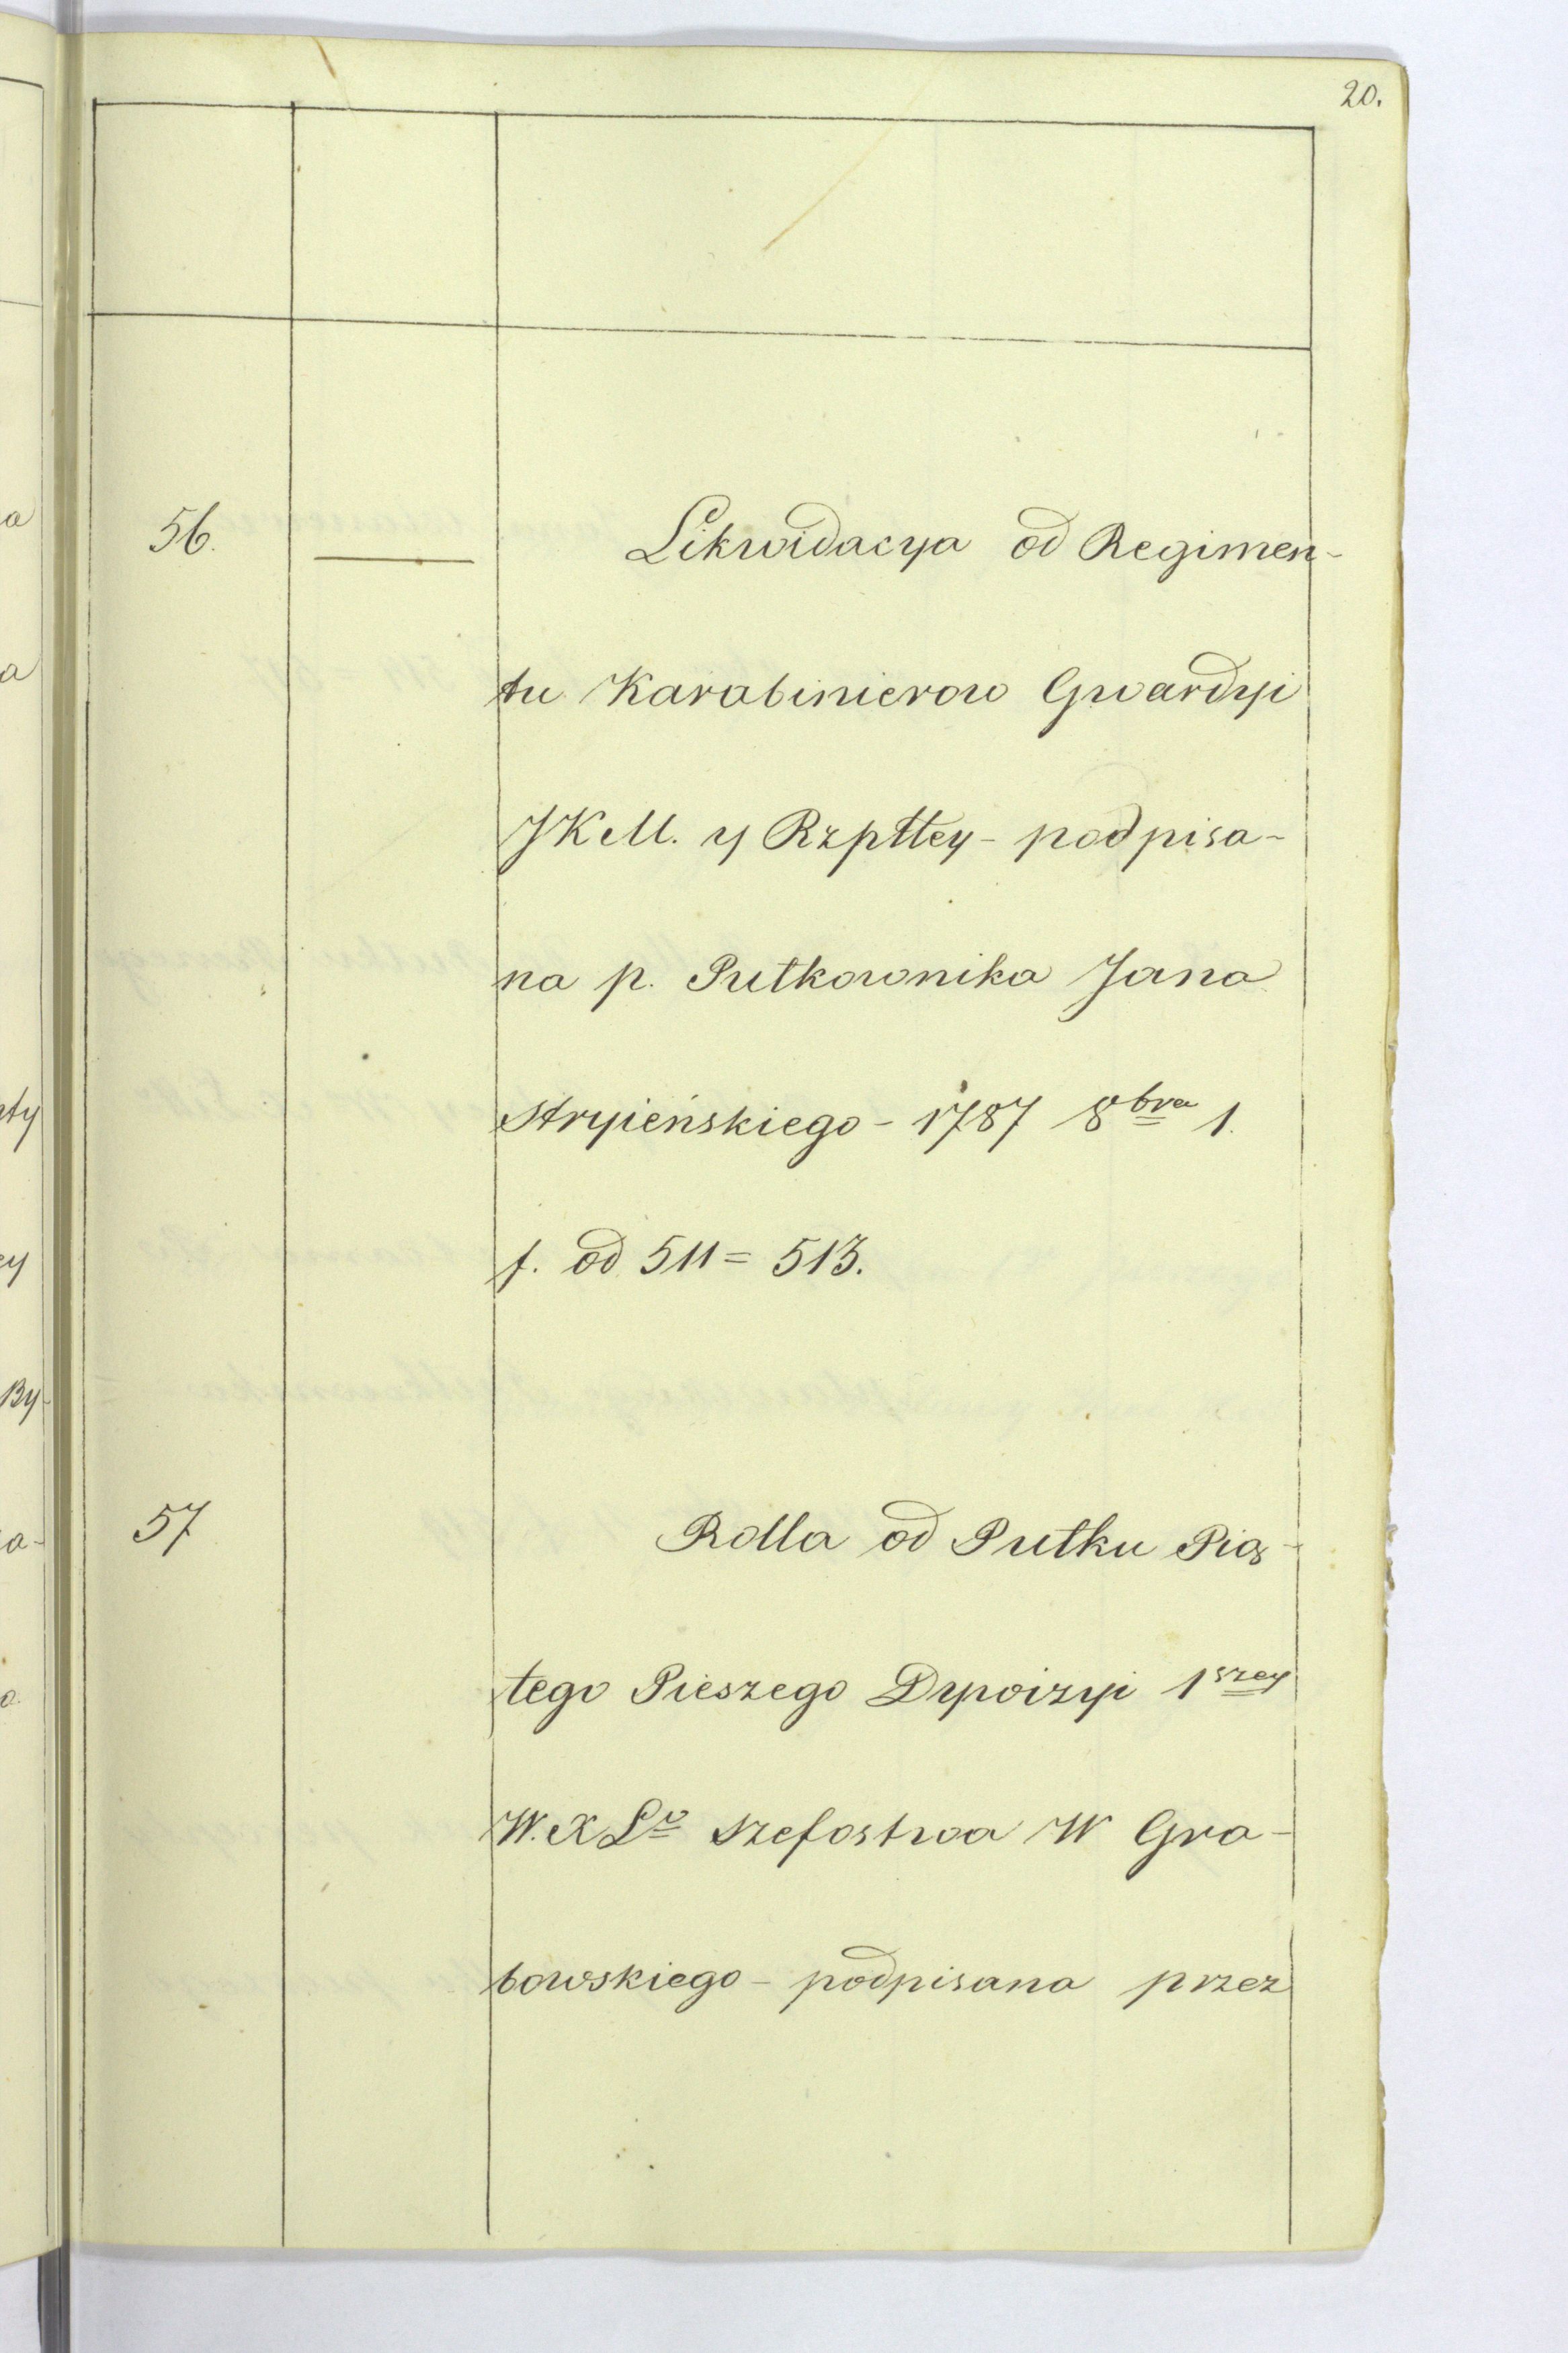 20.
56. — Likwidacya od Regimen-
tu Karabinierow Gwardyi
JKM. y Rzpttey - podpisa-
na p. Pułkownika Jana
Stryieńskiego - 1787 8bra 1.
f. od 511 = 513.
57 Rolla od Pułku Pią-
tego Pieszego Dywizyi 1szey
W. X Lo Szefostwa W Gra-
bowskiego - podpisana przez